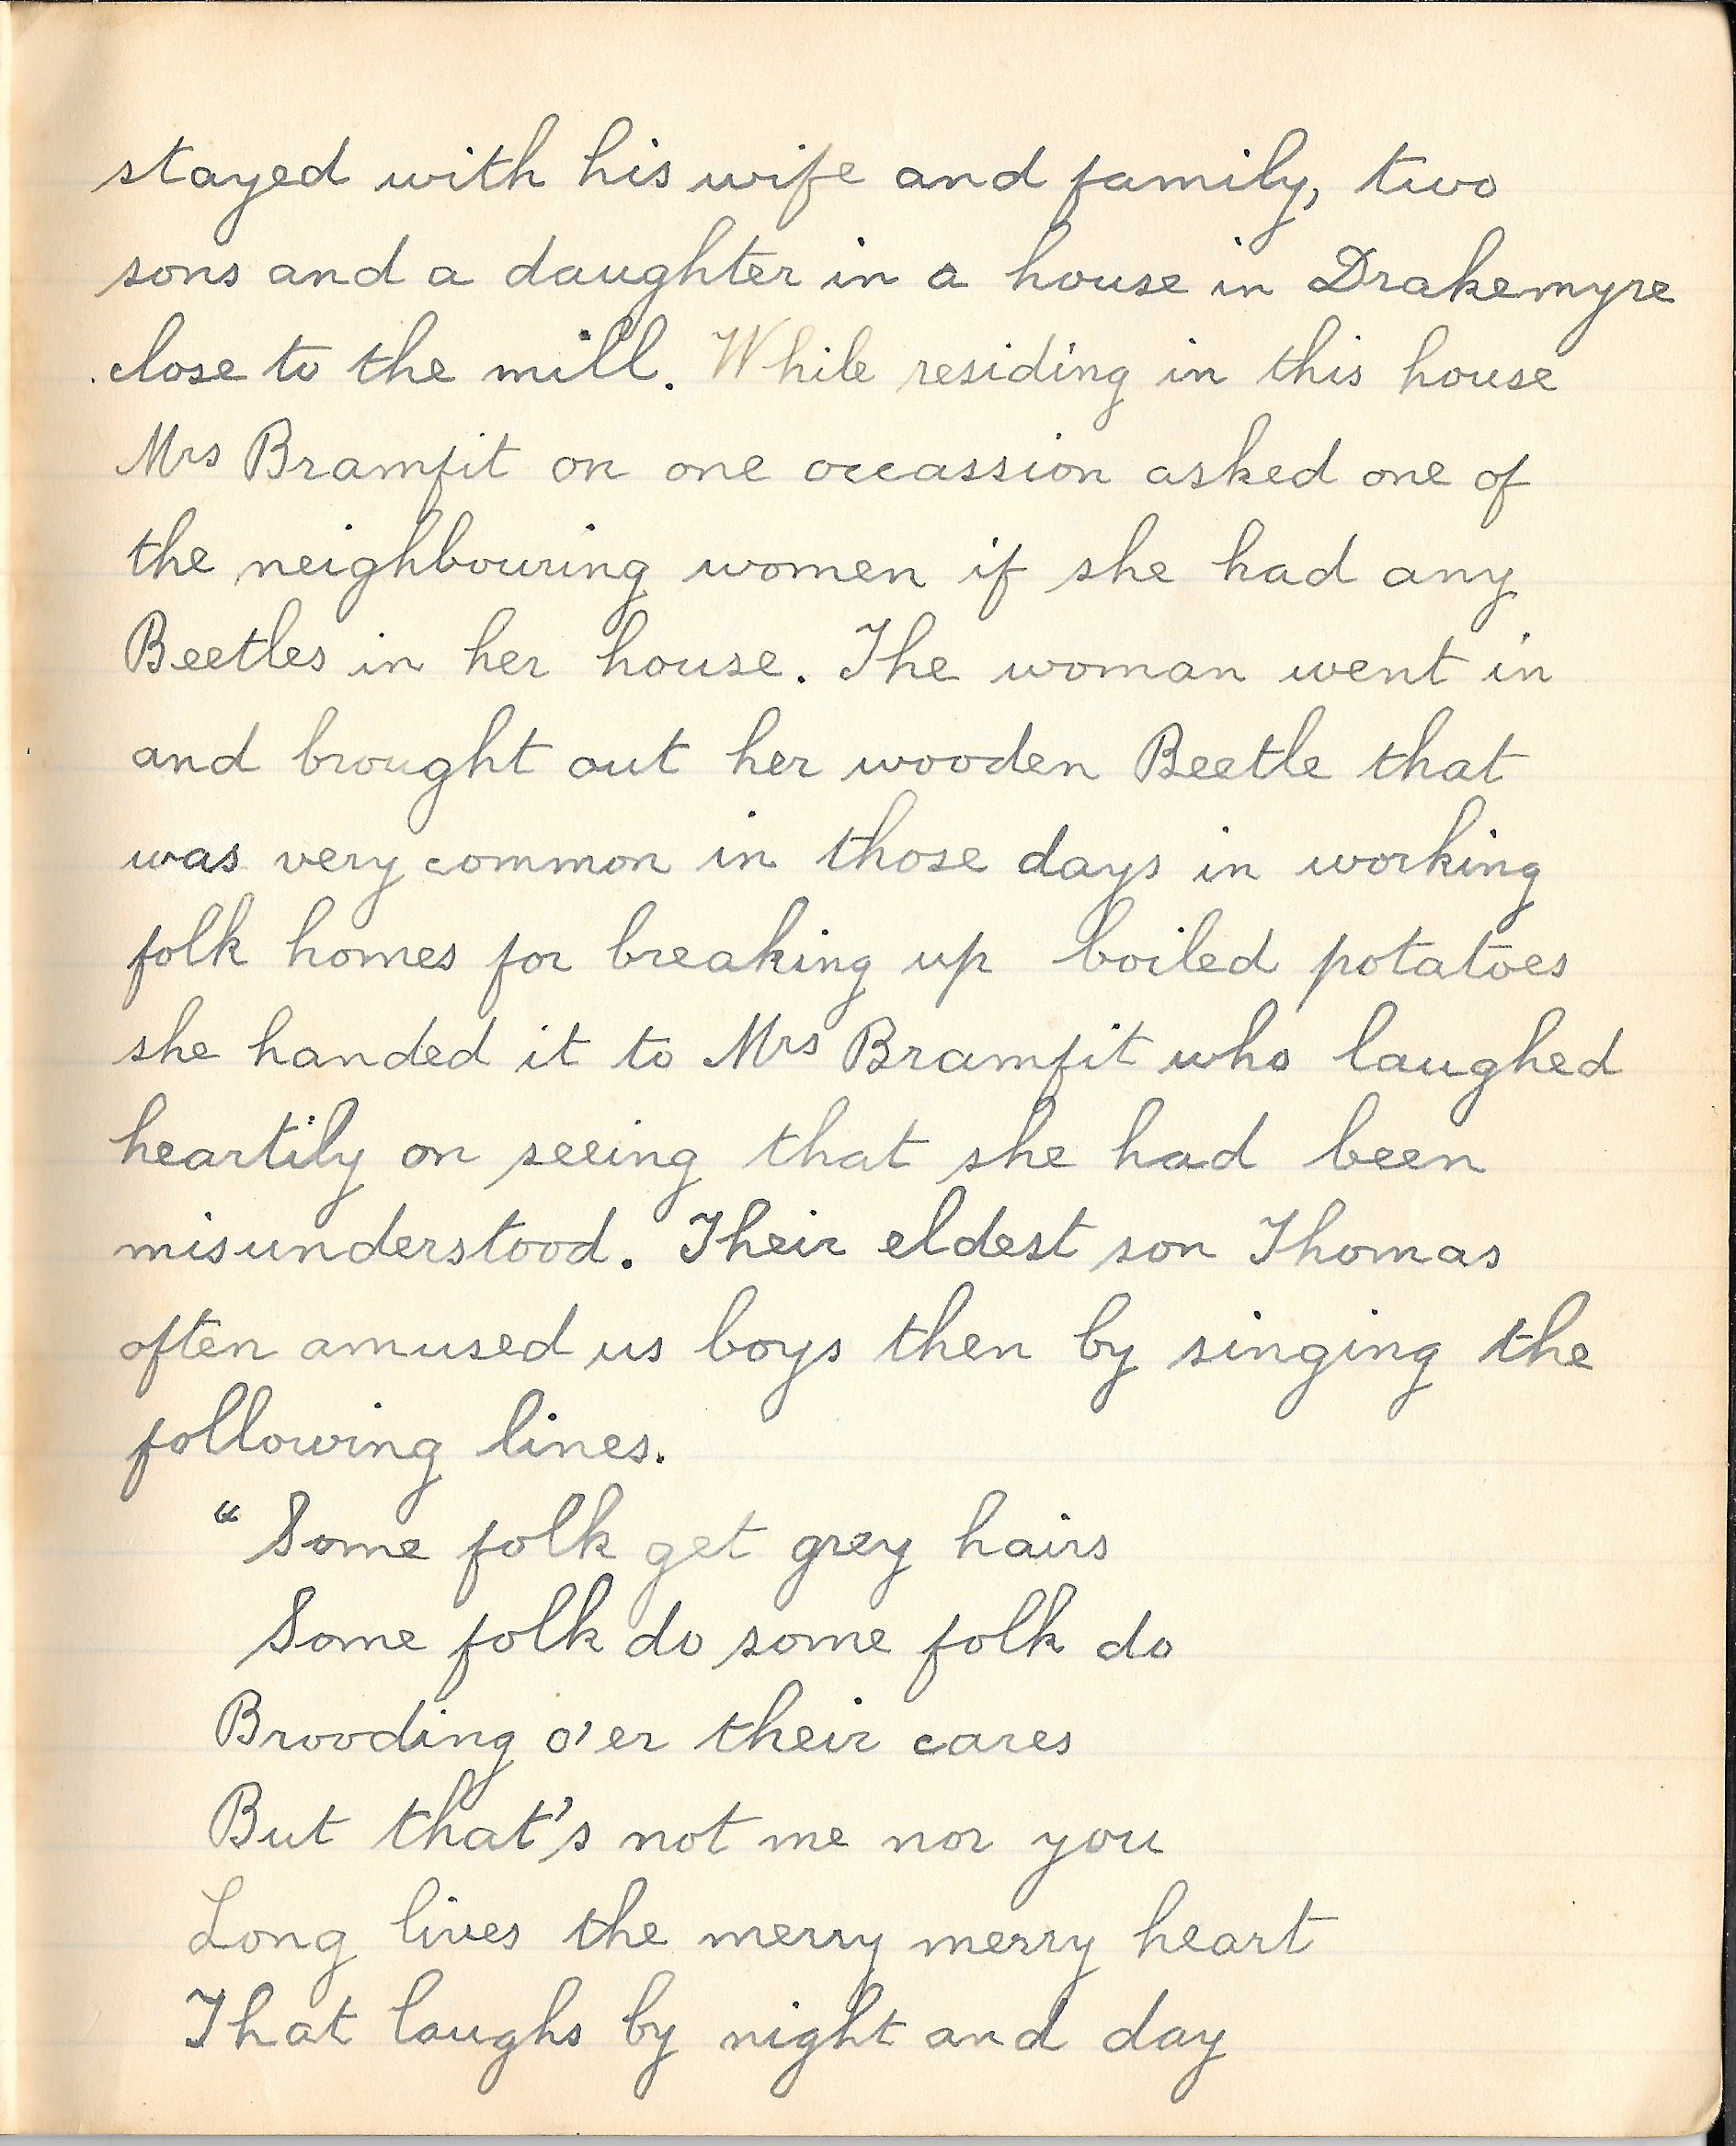 stayed with his wife and family, two
sons and a daughter in a house in Drakemyre
close to the mill. While residing in this house
Mrs Bramfit on one occassion asked one of
the neighbouring women if she had any
Beetles in her house. The woman went in
and brought out her wooden Beetle that
was very common in those days in working
folk homes for breaking up boiled potatoes
she handed it to Mrs Bramfit who laughed
heartily on seeing that she had been
misunderstood. Their eldest son Thomas
often amused us boys then by singing the
following lines.
"Some folk get grey hairs
Some folk do some folk do
Brooding o'er their cares
But that's not me nor you
Long lives the merry merry heart
That laughs by night and day